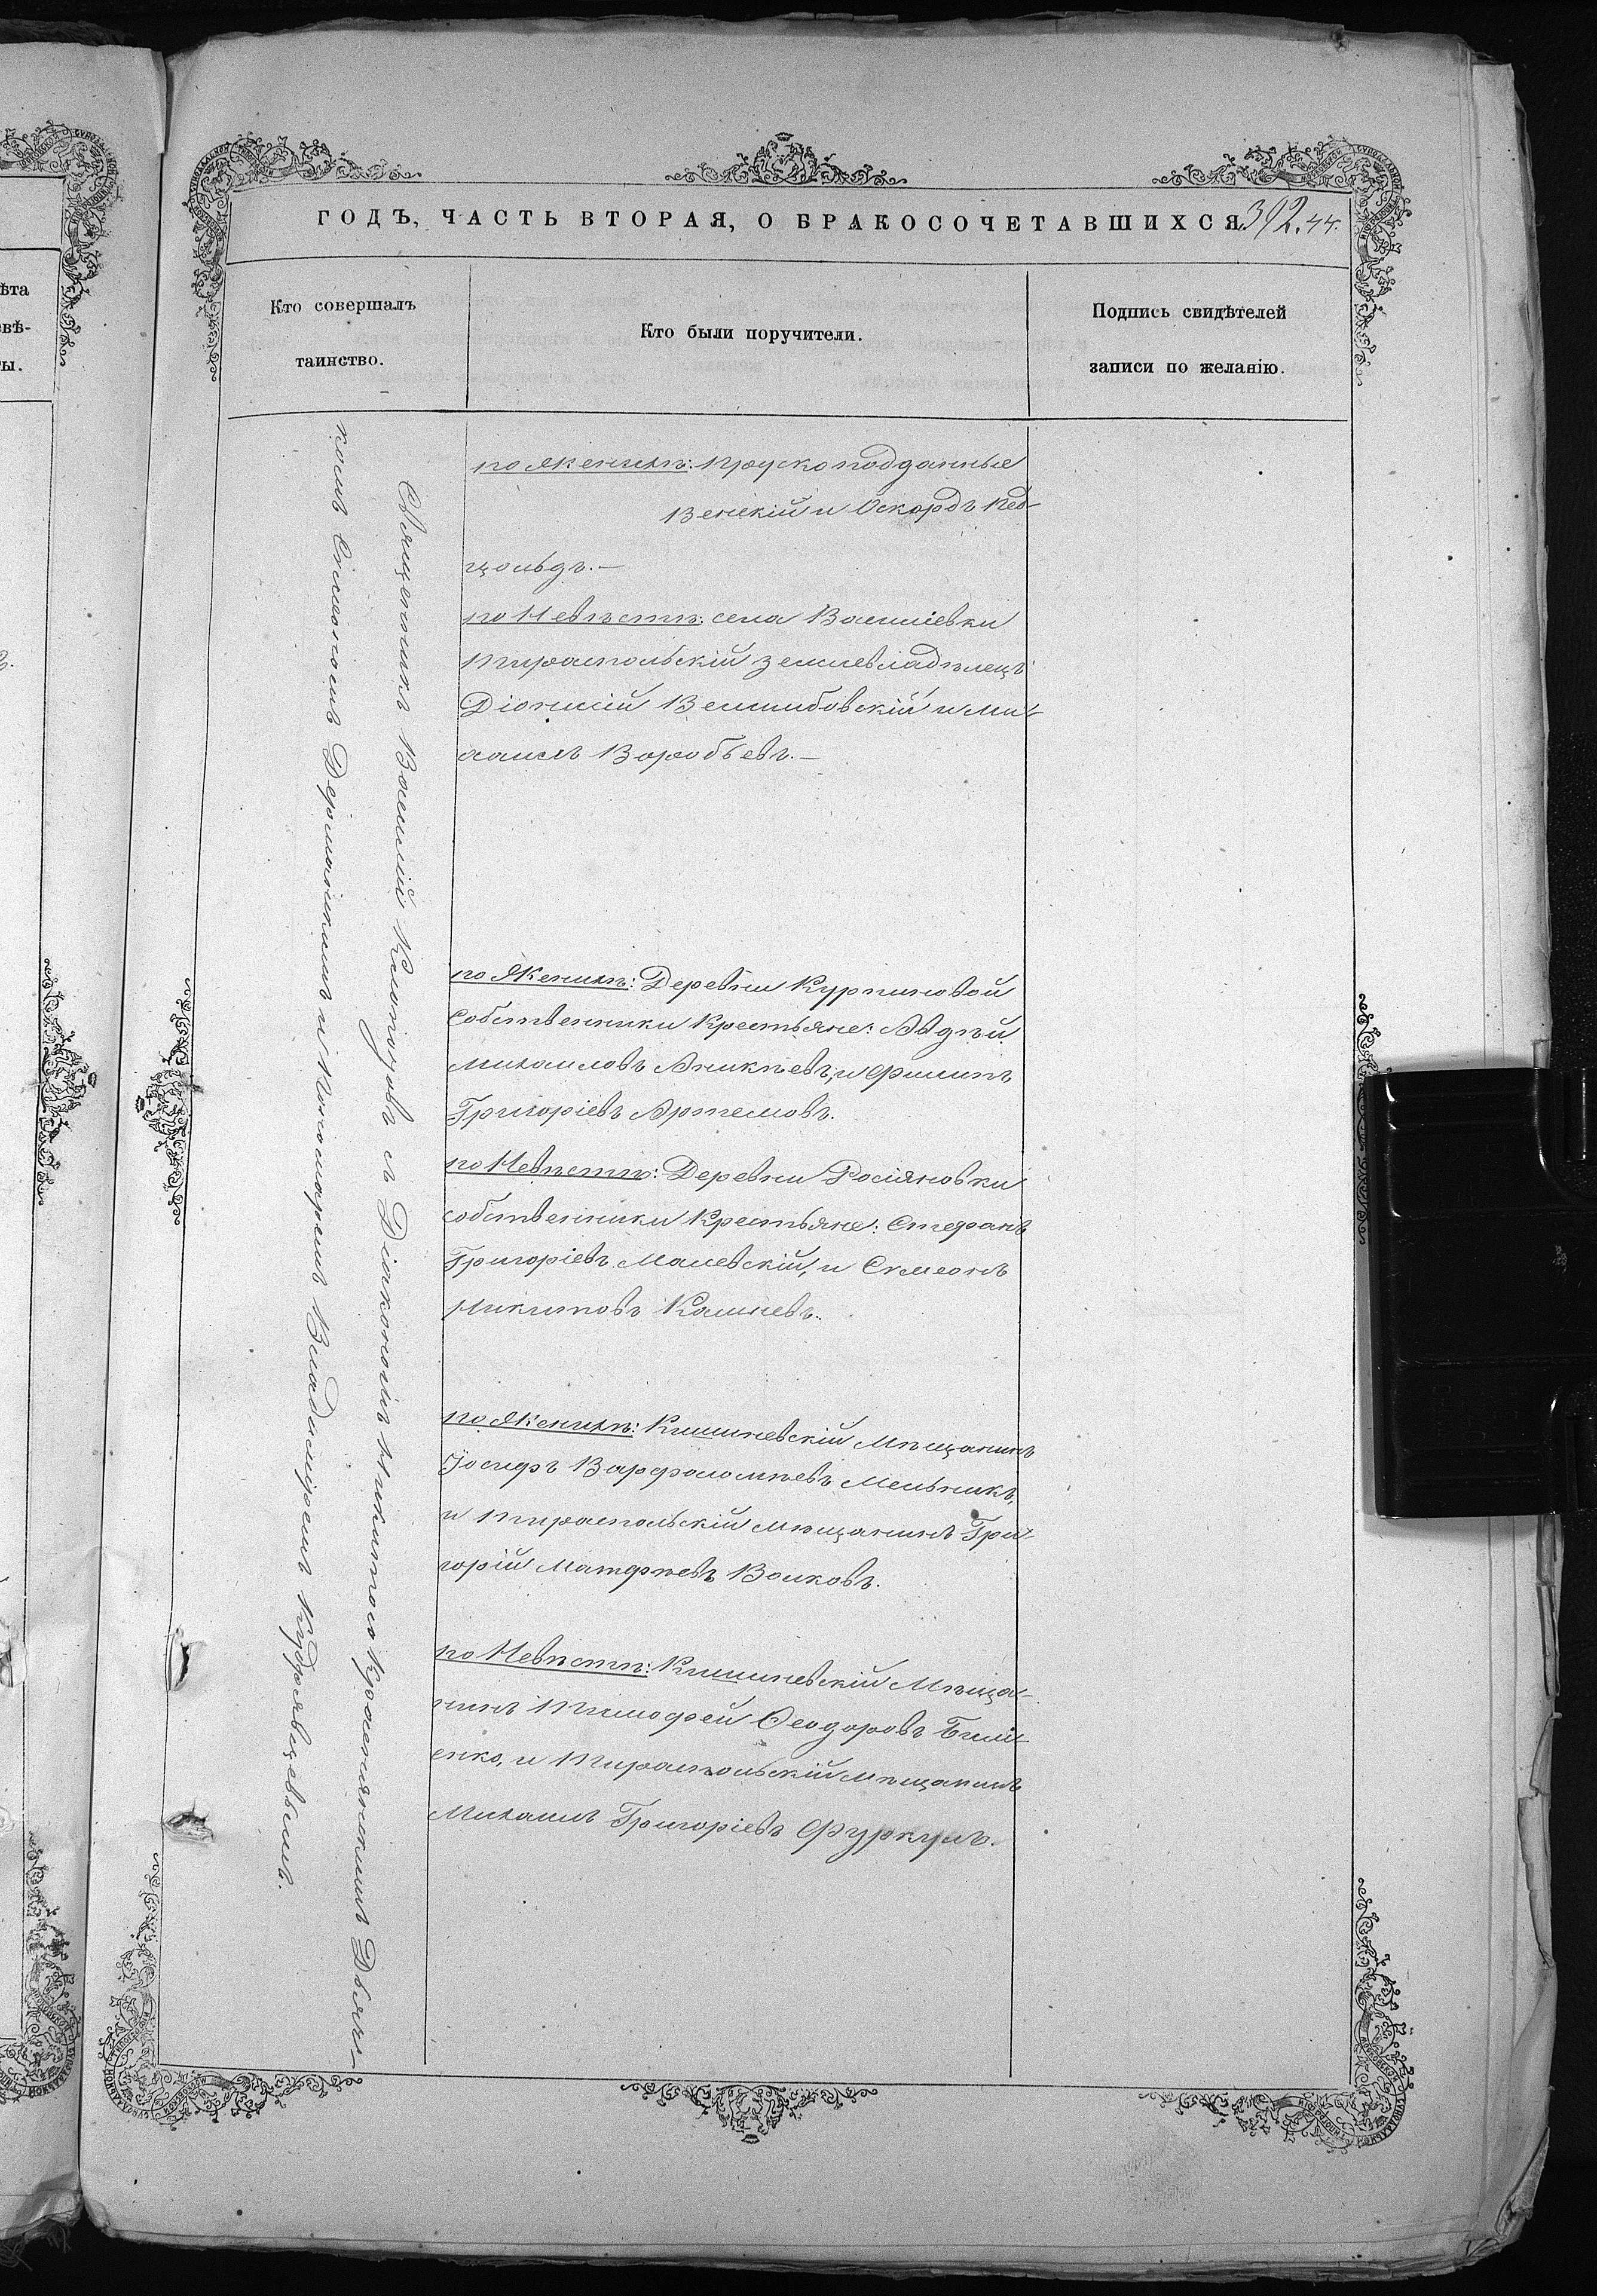 ГОДЪ, ЧАСТЬ ВТОРАЯ, О БРАКОСОЧЕТАВШИХСЯ 392. 44.
Кто совершалъ
таинство.
Кто были поручители.
Подпись свидѣтелей
записи по желанію.
Священникъ Василій Климентовъ съ Діакономъ Никитою Краснянскимъ Дьяч-
комъ Симеономъ Держанскимъ и Пономаремъ Владиміромъ Кудрявцевымъ.
по Женихѣ: прускоподданные
Венскій и Оскардъ Пед-
цольдъ.—
по Невѣстѣ: села Василіевки
Тираспольскій землевладѣлецъ
Діонисій Велшибовскій и Ми-
хаилъ Воробьевъ.—
по Женихѣ: Деревни Курпиновой
собственники Крестьяне: Авдѣй
Михаиловъ Аникѣевъ, и Филипъ
Григоріевъ Артемовъ.
по Невѣстѣ: Деревни Росіяновки
собственники Крестьяне: Стефанъ
Григоріевъ Малевскій, и Симеонъ
Никитовъ Калиневъ.
по Женихѣ: Кишиневскій Мѣщанинъ
Іосифъ Варфоломѣевъ Мельникъ,
и Тираспольскій мѣщанинъ Гри-
горій Матфѣевъ Волковъ.
по Невѣстѣ: Кишиневскій Мѣща-
нинъ Тимофей Феодоровъ Били-
енко, и Тираспольскій мѣщанинъ
Михаилъ Григоріевъ Фуркулъ.
ѣта
евѣ-
ты.